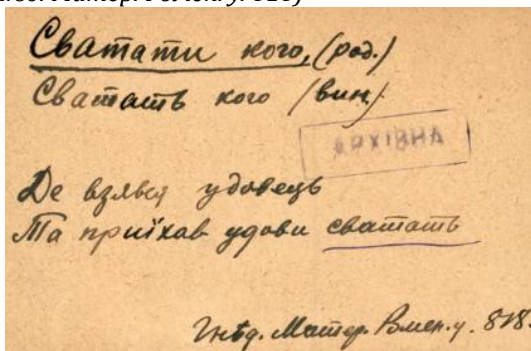 Сватати кого, (род.)
Сватать кого (вин.)
АРХІВНА
Де взявся удовець
Та приїхав удови сватать
Гнѣд. Матер. Ромен. у. 818.